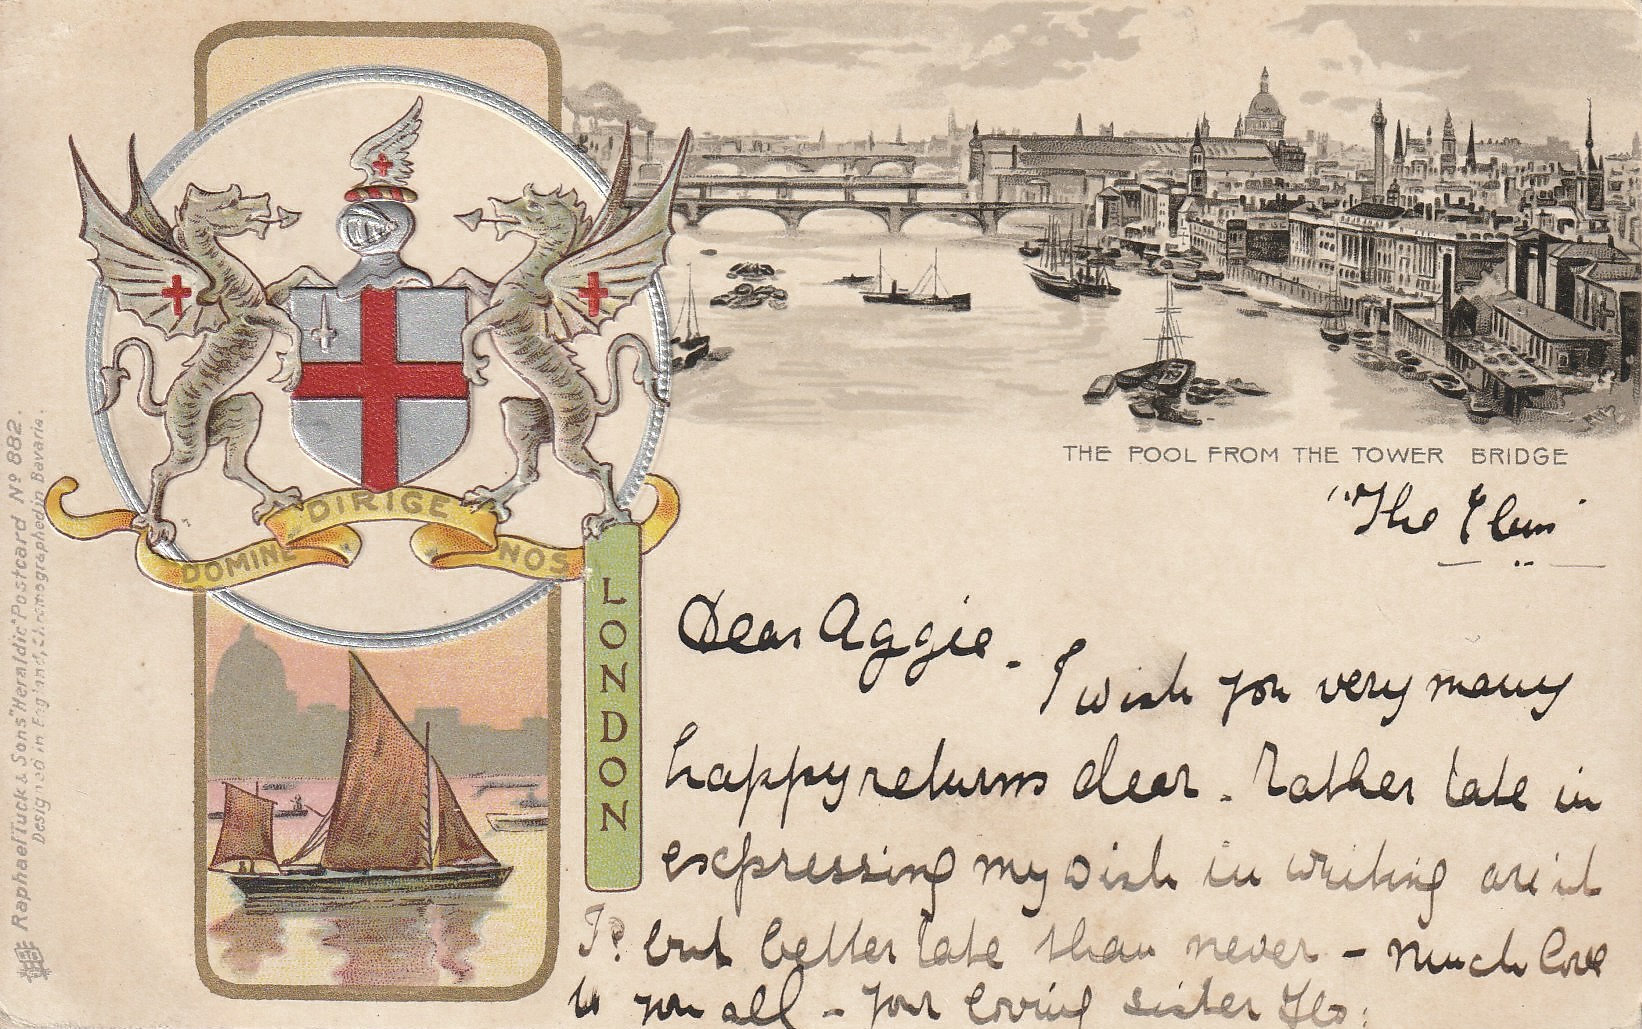 Raphael Tuck & Sons' "Heraldic" Postcard No 882.
Designed in England, Chromographed in Bavaria.
DOMINE DIRIGE NOS
LONDON
THE POOL FROM THE TOWER BRIDGE
"The Elms"
Dear Aggie -
I wish you very many
happy returns dear. Rather late in
expressing my wish in writing
I? but better late than never - Much love
to you all - your loving sister Flo: